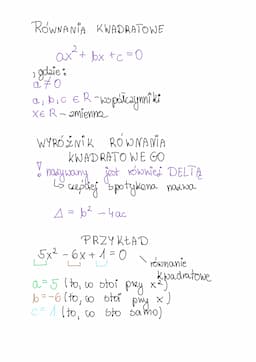 RÓWNANIA KWADRATOWE
ax² + bx + c = 0
, gdzie:
a ≠ 0
a, b, c ∈ R - współczynniki
x ∈ R - zmienna
WYRÓŻNIK RÓWNANIA
KWADRATOWEGO
! nazywany jest również DELTĄ
↳ częściej spotykana nazwa
Δ = b² - 4ac
PRZYKŁAD
5x² - 6x + 1 = 0
równanie
kwadratowe
a = 5 (to, co stoi przy x²)
b = -6 (to, co stoi przy x)
c = 1 (to, co sto samo)